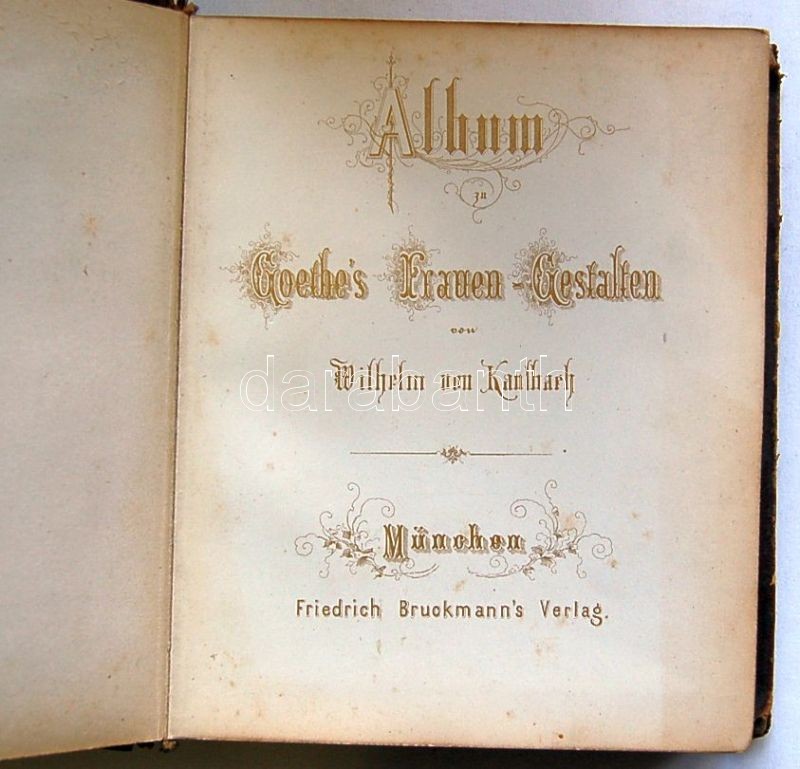 Album
zu
Goethe's Frauen-Gestalten
von
Wilhelm von Kaulbach
darabanth
München
Friedrich Bruckmann's Verlag.